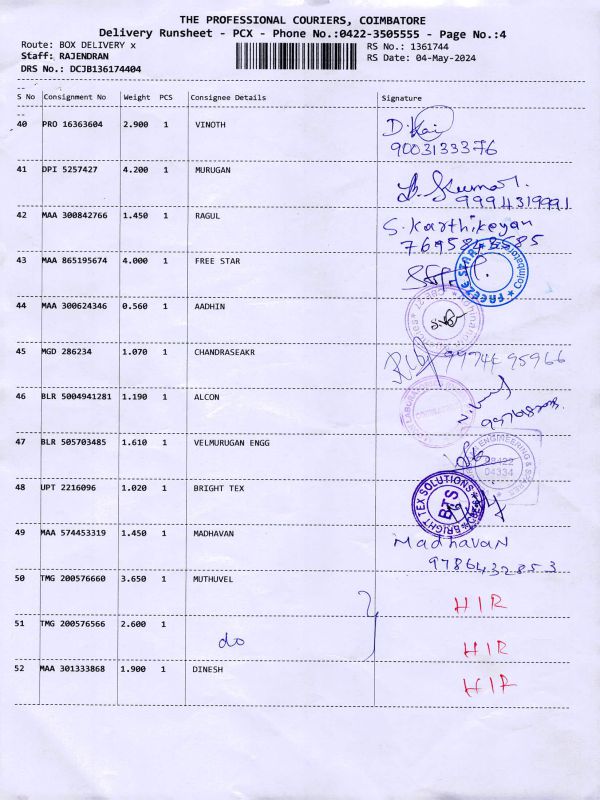 THE PROFESSIONAL COURIERS, COIMBATORE
Delivery Runsheet - PCX - Phone No.:0422-3505555 - Page No.:4
Route: BOX DELIVERY x RS No.: 1361744
Staff: RAJENDRAN RS Date: 04-May-2024
DRS No.: DCJB136174404
S No Consignment No Weight PCS Consignee Details Signature
40 PRO 16363604 2.900 1 VINOTH
9003133376
41 DPI 5257427 4.200 1 MURUGAN
9994319991
42 MAA 300842766 1.450 1 RAGUL S. Karthikeyan
43 MAA 865195674 4.000 1 FREE STAR
FREEZE STAR Coimbatore
44 MAA 300624346 0.560 1 AADHIN
45 MGD 286234 1.070 1 CHANDRASEAKR
46 BLR 5004941281 1.190 1 ALCON
47 BLR 505703485 1.610 1 VELMURUGAN ENGG
48 UPT 2216096 1.020 1 BRIGHT TEX
BRIGHT TEX SOLUTIONS
BTS
49 MAA 574453319 1.450 1 MADHAVAN Madhavan
9786432853
50 TMG 200576660 3.650 1 MUTHUVEL
51 TMG 200576566 2.600 1
do
52 MAA 301333868 1.900 1 DINESH